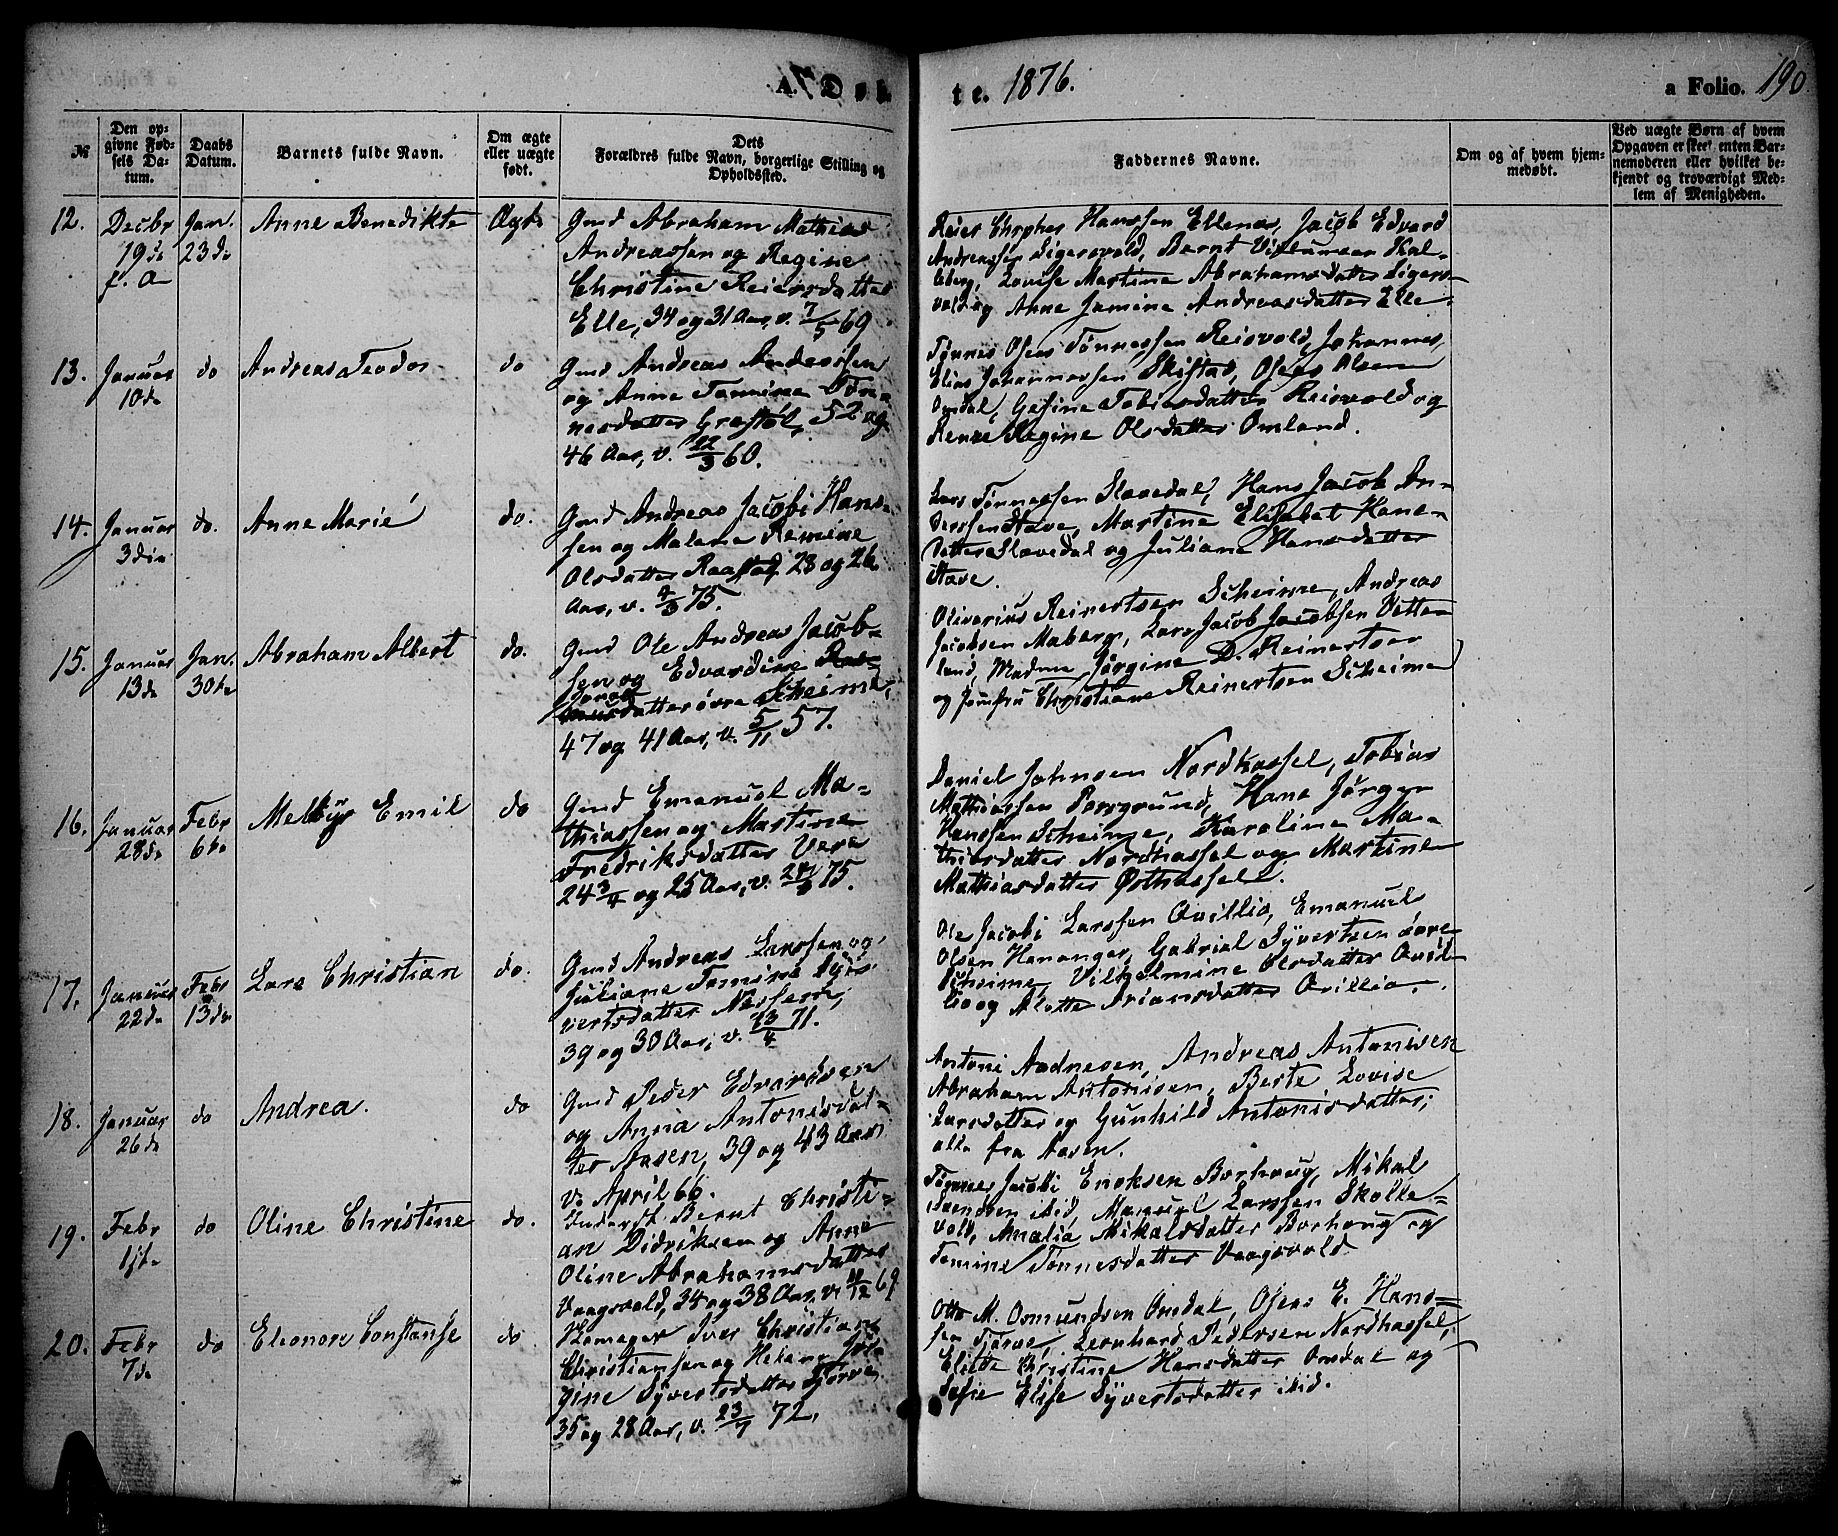 A. Døb
te. 1876.
a Folio. 190.
№
Den op-
givne Fød-
sels Da-
tum.
Daabs
Datum.
Barnets fulde Navn.
Om ægte
eller uægte
født.
Dets
Forældres fulde Navn, borgerlige Stilling og
Opholdssted.
Faddernes Navne.
Om og af hvem hjem-
medøbt.
Ved uægte Børn af hvem
Opgaven er skeet, enten Bar-
nemoderen eller hvilket be-
kjendt og troværdigt Med-
lem af Menigheden.
12. Decbr Jan. Anne Benedikte Ægte Gmd Abraham Mathias
19de 23de Andreassen og Regine
f. A Christine Reiersdatter
Elle, 34 og 31 Aar, v. 7/5 69
Reier Chrpher Hanssen Ellenes, Jacob Edvard
Andreassen Sigersvold, Bernt
Louise Martine Abrahamsdatter Sigers-
vold og Anne Jamine Andreasdatter Elle
13. Januar do Andreas Teodor do Gmd Andreas Anderssen
10de og Anne Tomine Tøn-
nesdatter Græstøl, 52 og
46 Aar, v. 22/3 60.
Tønnes Oseas Tønnessen Reisvold, Johannes
Elias Johannessen Skistad, Oseas Olsen
Omdal, Gesine Tobiasdatter Reisvold og
Regine Olsdatter Omland.
14. Januar do. Anne Marie do. Gmd Andreas Jacobi Hans-
3die sen og Malene Remine
Olsdatter Raastad 28 og 26
Aar, v. 4/3 75.
Lars Tønnessen Slævedal, Hans Jacob An-
derssen Stave, Martine Elisabet Hans-
datter Slævedal og Juliane Hansdatter
Stave.
15. Januar Jan. Abraham Albert do. Gmd Ole Andreas Jacob-
13de 30te sen og Edvardine
datter øvre Scheime,
47 og 41 Aar, v. 5/11 57.
Olivarius Reinertsen Scheime, Andreas
Jacobsen Maberg, Lars Jacob Jacobsen Vatne-
land, Madm Jørgine D. Reinertsen
og Jomfru Christiane Reinertsen Scheime
16. Januar Febr Emil do Gmd Emanuel Ma-
28de 6te thiassen og Martine
Fredriksdatter Vere
24 3/4 og 25 Aar, v. 75.
Daniel Johnsen Nordhassel, Tobias
Mathiassen Porsgrund, Hans Jørgen
Hanssen Scheime, Karoline Ma-
thiasdatter Nordhassel og Martine
Mathiasdatter Østhassel.
17. Januar Febr Lars Christian do. Gmd Andreas Larssen og
22de 13de Juliane Tomine Sy-
vertsdatter Næsheim,
39 og 30 Aar, v. 23/4 71.
Ole Jacobi Larssen Qvillio, Emanuel
Olsen Hananger, Gabriel Syvertsen øvre
Scheime, Vilhelmine Olsdatter Qvil-
lio og Alette Driansdatter Qvillio.
18. Januar do Andrea. do Gmd Peder Edvardsen
26de og Anna Antonisdat-
ter Aasen, 39 og 43 Aar
v. April 66.
Antoni Aadnesen, Andreas Antonisen
Abraham Antonisen, Berte Lovise
Larsdatter og Gunhild Antonisdatter,
alle fra Aasen.
19. Febr do Oline Christine do. Inderst Bernt Christi-
1ste an Didriksen og Anne
Oline Abrahamsdatter
Vaagsvold, 34 og 38 Aar, v. 69
Tønnes Jacobi Enoksen Borhaug, Mikal
Svendsen ibid, Manuel Larssen Skolle-
vold, Amalia Mikalsdatter Borhaug og
Tomine Tønnesdatter Vaagsvold
20. Febr do Eleonore Constanse do Iver Christian
7de Christianssen og Helene Jør-
gine Syvertsdatter Tjørve,
35 og 28 Aar, v. 23/7 72.
Otto M. Osmundsen Omdal, Oseas E. Hans-
sen Tjørve, Leonhard Pedersen Nordhassel,
Elisa Christine Hansdatter Omdal og
Sofie Elise Syvertsdatter ibid.